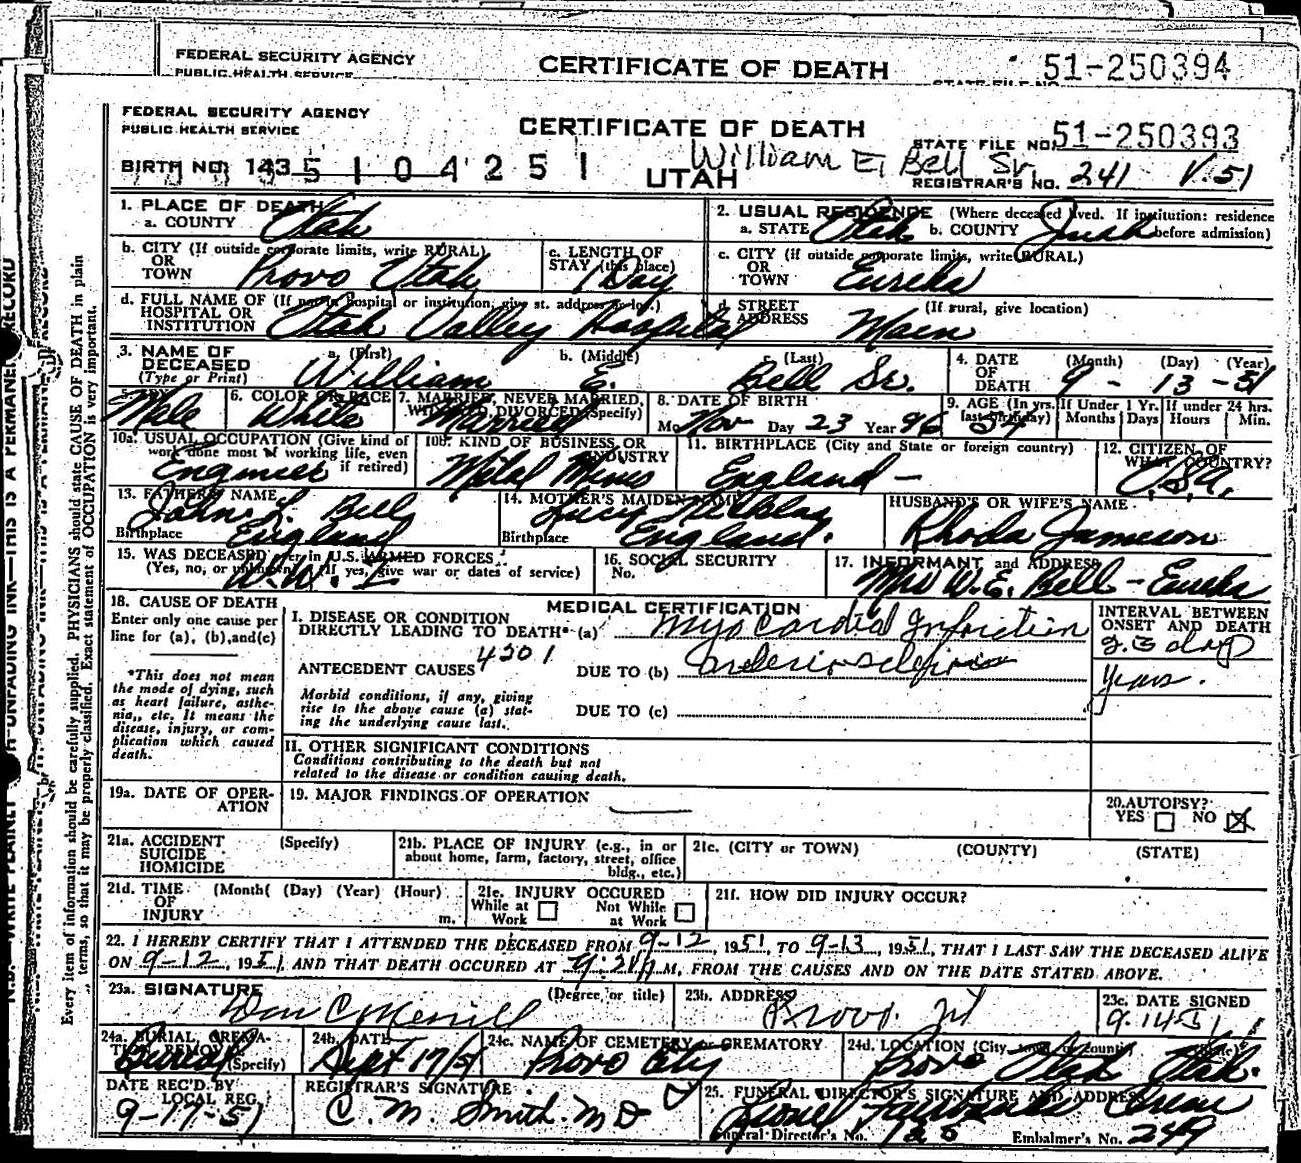 FEDERAL SECURITY AGENCY
PUBLIC HEALTH SERVICE
CERTIFICATE OF DEATH
51-250394
STATE FILE NO.
FEDERAL SECURITY AGENCY
PUBLIC HEALTH SERVICE
CERTIFICATE OF DEATH
STATE FILE NO. 51-250393
William E. Bell Sr.
BIRTH NO. 143 5 1 0 4 2 5 1
UTAH
REGISTRAR'S NO. 241 V. 51
Every item of information should be carefully supplied. PHYSICIANS should state CAUSE OF DEATH in plain
terms, so that it may be properly classified. Exact statement of OCCUPATION is very important.
1. PLACE OF DEATH
a. COUNTY Utah
2. USUAL RESIDENCE (Where deceased lived. If institution: residence
a. STATE Utah b. COUNTY Juab before admission)
b. CITY (If outside corporate limits, write RURAL)
OR
TOWN Provo Utah
c. LENGTH OF
STAY (this place) 1 Day
c. CITY (If outside corporate limits, write RURAL)
OR
TOWN Eureka
d. FULL NAME OF (If not in hospital or institution, give st. address or loc.)
HOSPITAL OR
INSTITUTION Utah Valley Hospital
d. STREET (If rural, give location)
ADDRESS Main
3. NAME OF DECEASED (Type or Print)
a. (First) b. (Middle) c. (Last)
William E. Bell Sr.
4. DATE OF DEATH (Month) (Day) (Year)
9 - 13 - 51
5. SEX Male
6. COLOR OR RACE White
7. MARRIED, NEVER MARRIED, WIDOWED, DIVORCED (Specify) Married
8. DATE OF BIRTH
Mo. Nov Day 23 Year 96
9. AGE (In yrs. last birthday) 54 If Under 1 Yr. Months Days If under 24 hrs. Hours Min.
10a. USUAL OCCUPATION (Give kind of work done most of working life, even if retired) Engineer
10b. KIND OF BUSINESS OR INDUSTRY Metal Mines
11. BIRTHPLACE (City and State or foreign country) England -
12. CITIZEN OF WHAT COUNTRY? U.S.A.
13. FATHER'S NAME John L. Bell
Birthplace England
14. MOTHER'S MAIDEN NAME Lucy
Birthplace England.
HUSBAND'S OR WIFE'S NAME
Rhoda Jameson
15. WAS DECEASED ever in U.S. ARMED FORCES
(Yes, no, or unknown) (If yes, give war or dates of service) W.W. I
16. SOCIAL SECURITY
No.
17. INFORMANT and ADDRESS
Mrs W.E. Bell - Eureka
18. CAUSE OF DEATH
Enter only one cause per
line for (a), (b), and (c)
*This does not mean
the mode of dying, such
as heart failure, asthe-
nia,, etc. It means the
disease, injury, or com-
plication which caused
death.
MEDICAL CERTIFICATION
I. DISEASE OR CONDITION
DIRECTLY LEADING TO DEATH* (a) Myocardial Infarction
ANTECEDENT CAUSES 4201 DUE TO (b) Arteriosclerosis
Morbid conditions, if any, giving
rise to the above cause (a) stat-
ing the underlying cause last.
DUE TO (c)
INTERVAL BETWEEN
ONSET AND DEATH
2-3 days
Years.
II. OTHER SIGNIFICANT CONDITIONS
Conditions contributing to the death but not
related to the disease or condition causing death.
19a. DATE OF OPER-
ATION
19. MAJOR FINDINGS OF OPERATION
20. AUTOPSY?
YES NO X
21a. ACCIDENT (Specify)
SUICIDE
HOMICIDE
21b. PLACE OF INJURY (e.g., in or
about home, farm, factory, street, office
bldg., etc.)
21c. (CITY or TOWN) (COUNTY) (STATE)
21d. TIME (Month( (Day) (Year) (Hour)
OF
INJURY m.
21e. INJURY OCCURED
While at Work Not While at Work
21f. HOW DID INJURY OCCUR?
22. I HEREBY CERTIFY THAT I ATTENDED THE DECEASED FROM 9-12, 1951, TO 9-13, 1951, THAT I LAST SAW THE DECEASED ALIVE
ON 9-12, 1951, AND THAT DEATH OCCURED AT M, FROM THE CAUSES AND ON THE DATE STATED ABOVE.
23a. SIGNATURE (Degree or title)
Don C Merrill
23b. ADDRESS
Provo. Ut
23c. DATE SIGNED
9-14-51
24a. BURIAL, CREMATION, REMOVAL (Specify) Burial
24b. DATE
Sept 17/51
24c. NAME OF CEMETERY or CREMATORY
Provo City
24d. LOCATION (City, town, or county) (State)
Provo Utah Utah.
DATE REC'D BY
LOCAL REG.
9-17-51
REGISTRAR'S SIGNATURE
C. M. Smith. M D
25. FUNERAL DIRECTOR'S SIGNATURE AND ADDRESS
Lionel
Funeral Director's No. Embalmer's No. 249